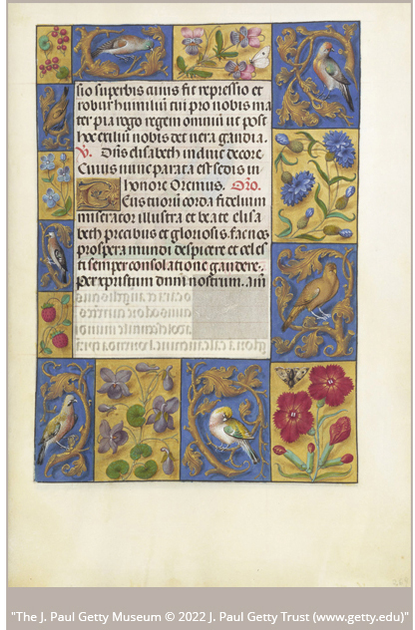 sio superbis cuius fit repressio et
robur humiliū tui pro nobis ma
ter pia rogo regem omniū ut post
hoc exiliū nobis det vera gaudia.
V. Dñs elisabeth induit decore
Cuius nunc parata est sedis in
honore Oremus. Oro.
Deus tuorū corda fidelium
miserator illustra et beate elisa
beth precibus et gloriosis. fac nos
prospera mundi despicere et celes
ti semper consolatione gaudere.
Per xpristum dnm nostrum. am
264
"The J. Paul Getty Museum © 2022 J. Paul Getty Trust (www.getty.edu)"